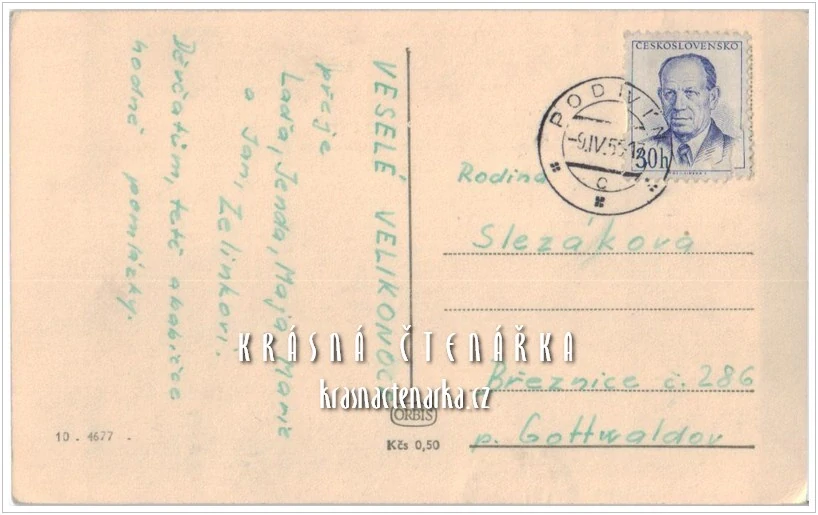 VESELÉ VELIKONOCE
přeje
Laďa, Jenda, Maja, Marie
a Jan, Zelinkovi.
Děvčatům, tetě a babičce
hodně pomlázky.
ČESKOSLOVENSKO
30h
PODIVÍN
-9.IV.55-13
c
Rodina
Slezákova
Březnice č. 286
p. Gottwaldov
KRÁSNÁ ČTENÁŘKA
krasnactenarka.cz
ORBIS
Kčs 0,50
10 - 4677 -